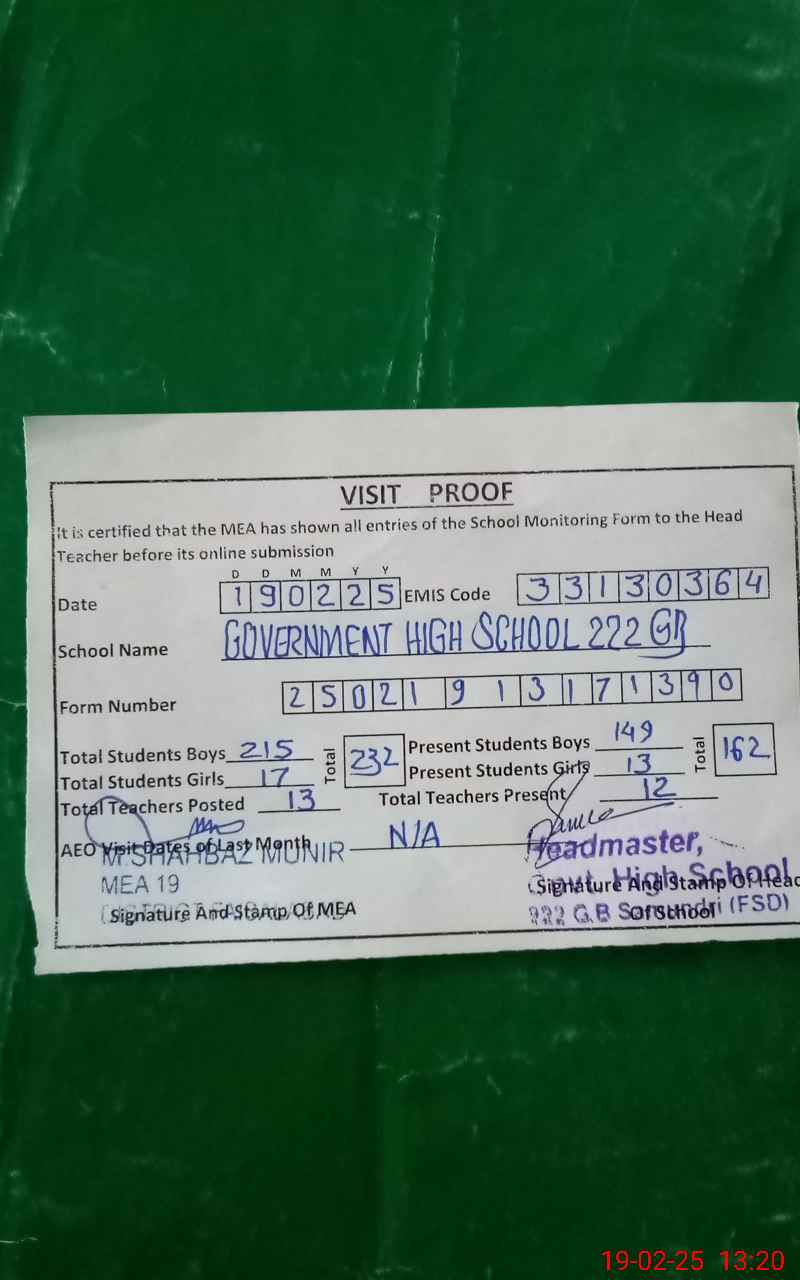 VISIT PROOF
It is certified that the MEA has shown all entries of the School Monitoring Form to the Head
Teacher before its online submission
D D M M Y Y
Date 1 9 0 2 2 5 EMIS Code 3 3 1 3 0 3 6 4
School Name GOVERNMENT HIGH SCHOOL 222 GB
Form Number 2 5 0 2 1 9 1 3 1 7 1 3 9 0
Total Students Boys 215 Total 232 Present Students Boys 149 Total 162
Total Students Girls 17 Present Students Girls 13
Total Teachers Posted 13 Total Teachers Present 12
AEO Visit Dates of Last Month N/A
M.SHAHBAZ MUNIR
MEA 19
Signature And Stamp Of MEA
Headmaster,
Govt. High School
Signature And Stamp Of Head
222 G.B Samundri (FSD)
Of School
19-02-25 13:20